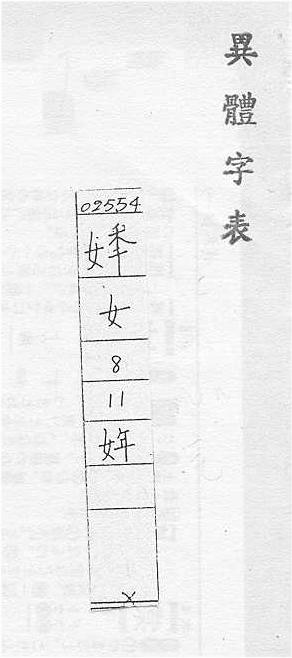 異體字表
02554
⿰女秊
女
8
11
姩